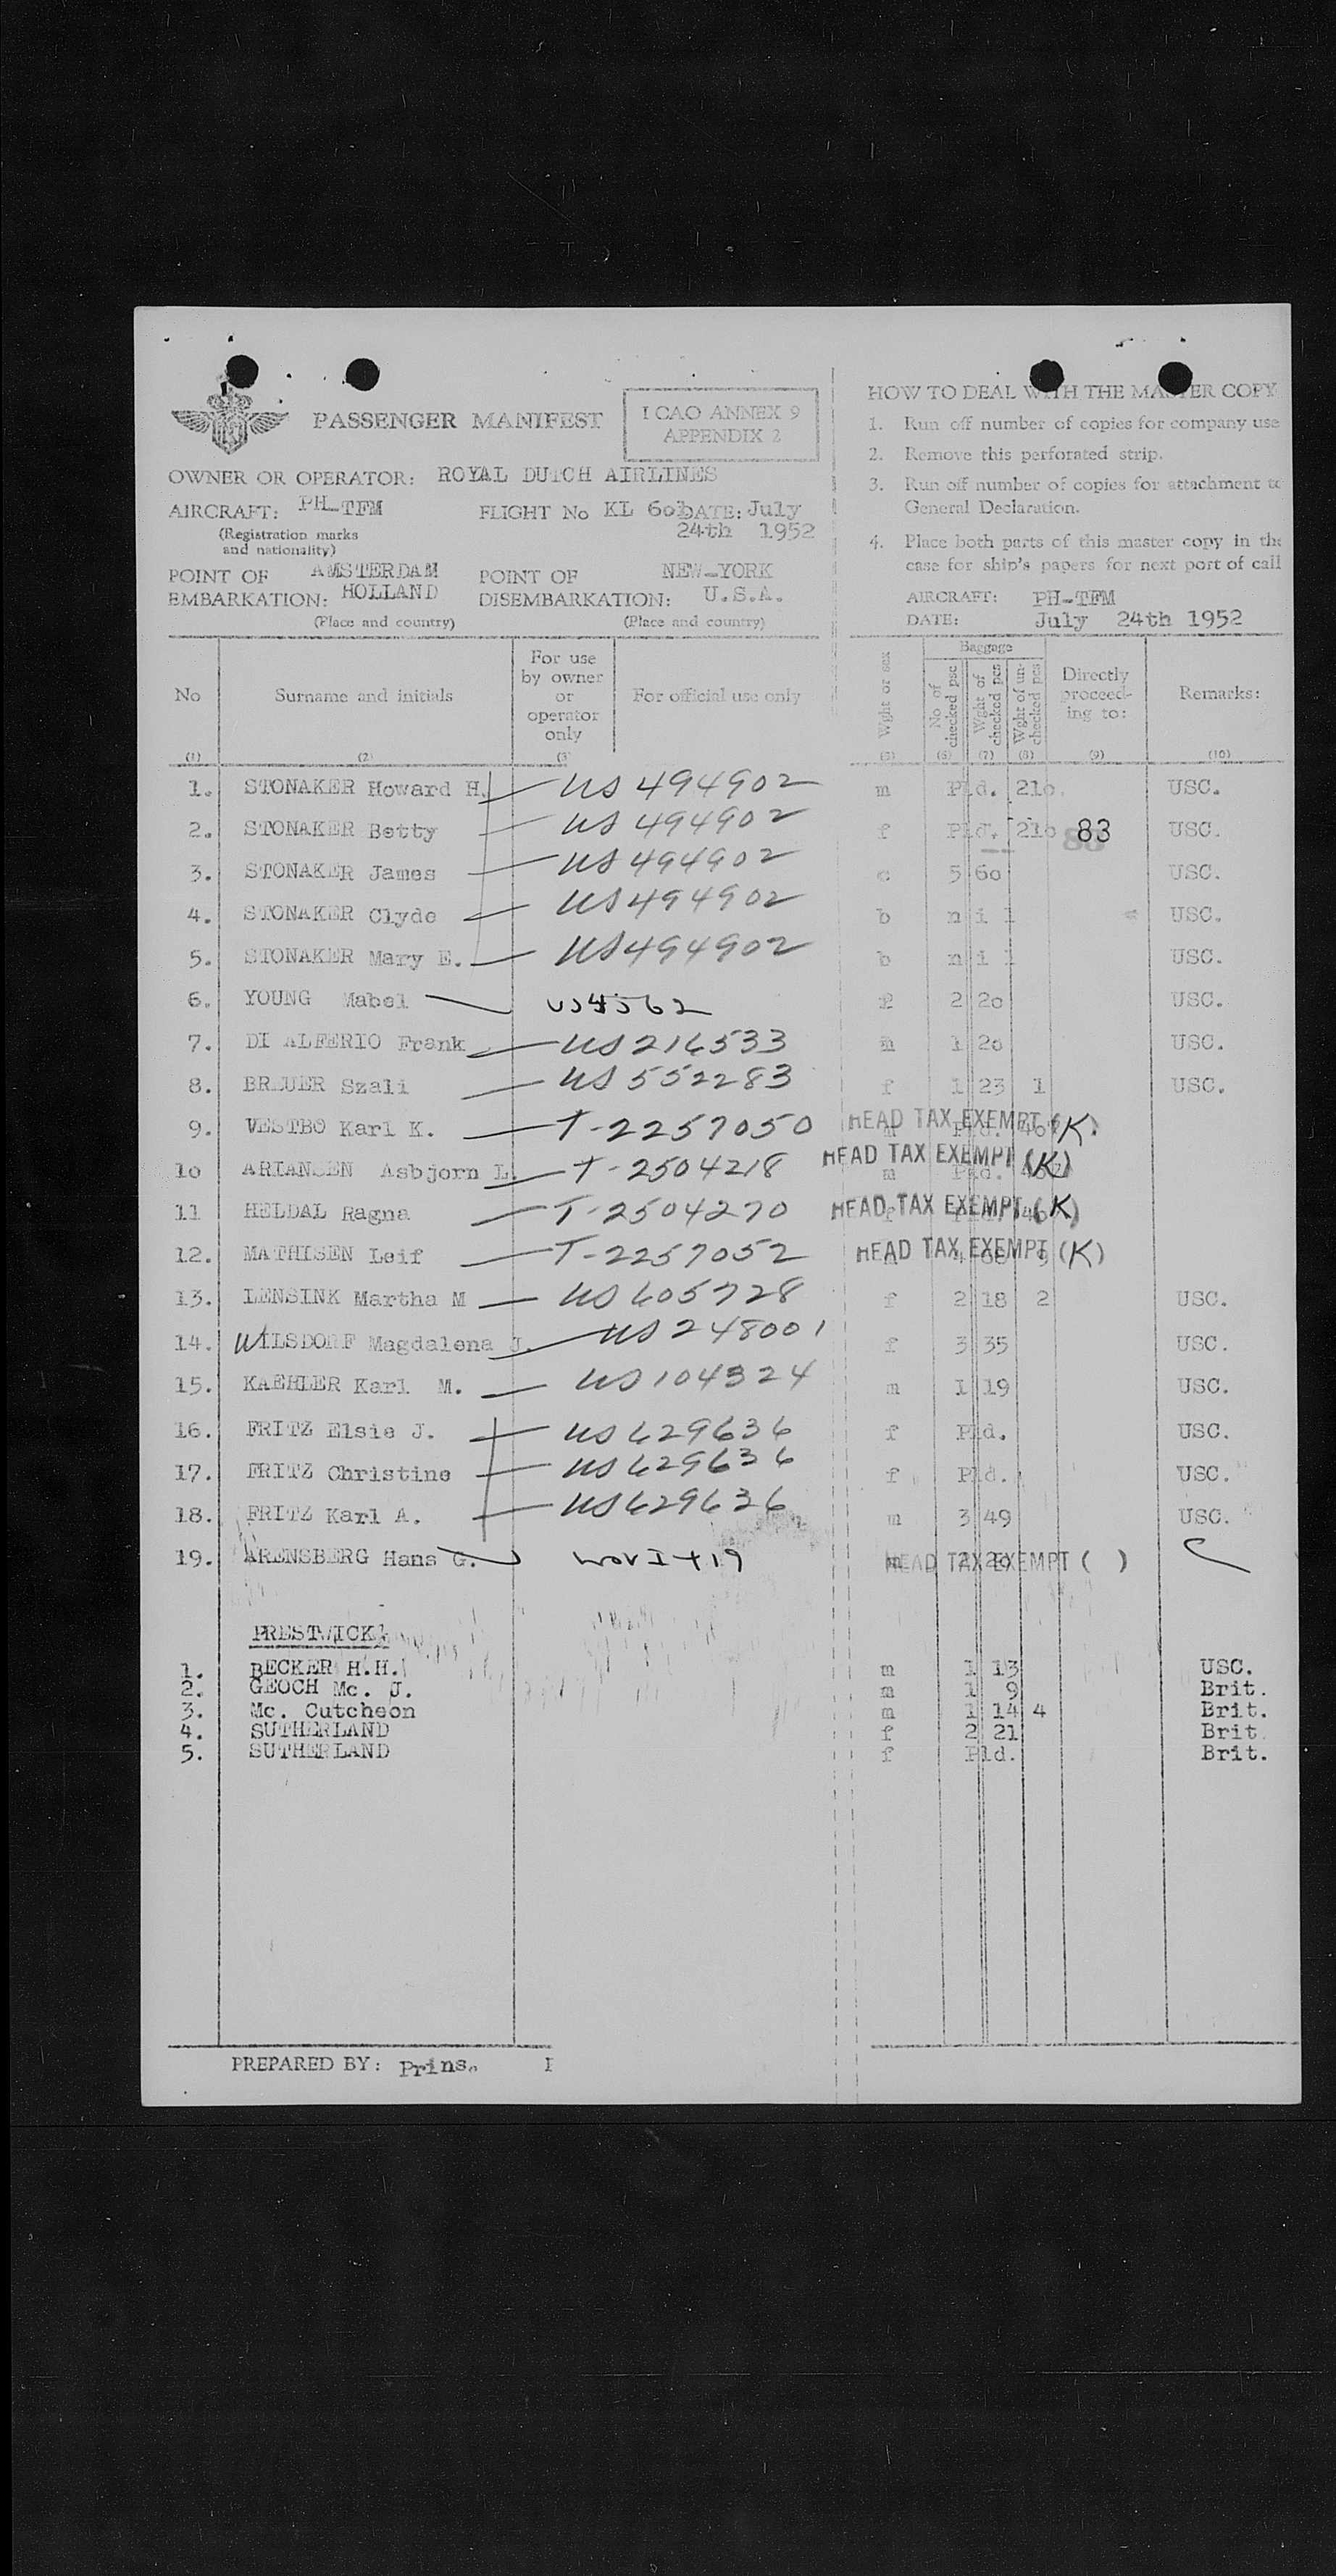 PASSENGER MANIFEST
I CAO ANNEX 9
APPENDIX 2
OWNER OR OPERATOR: ROYAL DUTCH AIRLINES
AIRCRAFT: PH-TFM
(Registration marks
and nationality)
FLIGHT No KL DATE: July
24th 1952
POINT OF AMSTERDAM
EMBARKATION: HOLLAND
(Place and country)
POINT OF NEW-YORK
DISEMBARKATION: U.S.A.
(Place and country)
HOW TO DEAL WITH THE MASTER COPY
1. Run off number of copies for company use
2. Remove this perforated strip.
3. Run off number of copies for attachment to
General Declaration.
4. Place both parts of this master copy in the
case for ship's papers for next port of call
AIRCRAFT: PH-TFM
DATE: July 24th 1952
No
Surname and initials
For use
by owner
or
operator
only
For official use only
Wght or sex
Baggage
No of
checked pse
Wght of
checked pcs
Wght of un-
checked pcs
Directly
proceed-
ing to:
Remarks:
(1) (2) (3) (5) (6) (7) (8) (9) (10)
1. STONAKER Howard H. US 494902 m Pld. 21o USC.
2. STONAKER Betty US 494902 f Pld. 21o 83 USC.
3. STONAKER James US 494902 c 5 6o USC.
4. STONAKER Clyde US 494902 b n i l USC.
5. STONAKER Mary E. US 494902 b n i l USC.
6. YOUNG Mabel US 4562 f 2 2o USC.
7. DI ALFERIO Frank US 216533 m 1 2o USC.
8. BREUER Szali US 552283 f 1 23 1 USC.
9. VESTBO Karl K. T-2257050 HEAD TAX EXEMPT (K)
1o ARIANSEN Asbjorn L. T-2504218 m Pld. HEAD TAX EXEMPT (K)
11 HELDAL Ragna T-2504270 HEAD TAX EXEMPT (K)
12. MATHISEN Leif T-2257052 HEAD TAX EXEMPT (K)
13. LENSINK Martha M US 605728 f 2 18 2 USC.
14. WILSDORF Magdalena J. US 248001 f 3 35 USC.
15. KAEHLER Karl M. US 104324 m 1 19 USC.
16. FRITZ Elsie J. US 629636 f Pld. USC.
17. FRITZ Christine US 629636 f Pld. USC.
18. FRITZ Karl A. US 629636 m 3 49 USC.
19. ARENSBERG Hans G. m 2 2o HEAD TAX EXEMPT ( )
PRESTWICK
1. BECKER H.H. m 1 13 USC.
2. GEOCH Mc. J. m 1 9 Brit.
3. Mc. Cutcheon m 1 14 4 Brit.
4. SUTHERLAND f 2 21 Brit.
5. SUTHERLAND f Pld. Brit.
PREPARED BY: Prins.